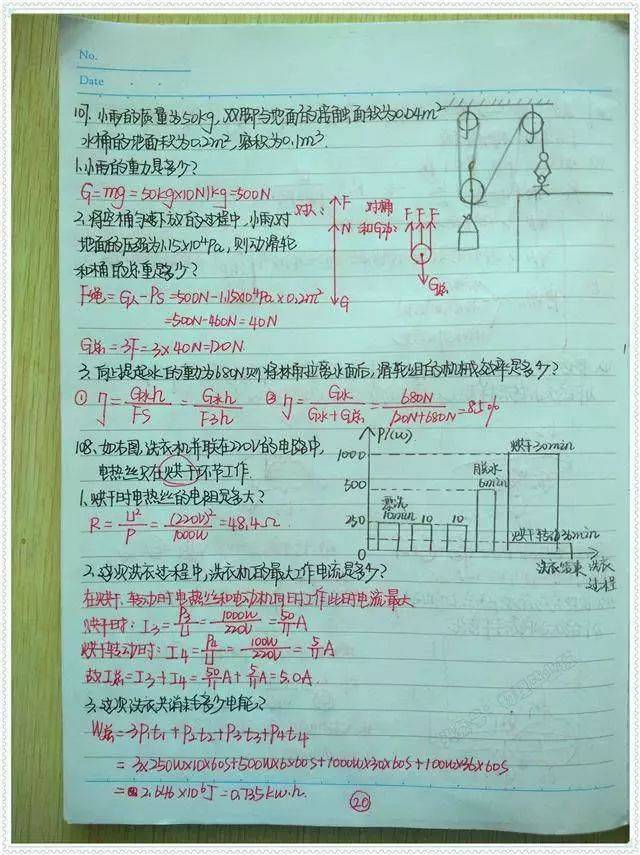 No.
Date
107. 小雨的质量为50kg, 双脚与地面的接触面积为0.04m²
水桶的地面积为0.2m², 容积为0.1m³.
1. 小雨的重力是多少?
G=mg=50kg×10N/kg=500N
对人: F N G
对桶和G动: F F F G总
2. 将空桶匀速下放的过程中, 小雨对
地面的压强为1.15×10⁴Pa, 则动滑轮
和桶的总重是多少?
F绳=G人-PS=500N-1.15×10⁴Pa×0.2m²
=500N-460N=40N
G总=3F=3×40N=120N
3. 向上提起水的重力为680N则将桶拉离水面后, 滑轮组的机械效率是多少?
① η=G水h/FS=G水h/F3h ② η=G水/G水+G总=680N/120N+680N=85%
108. 如右图, 洗衣机并联在220V的电路中,
电热丝只在烘干环节工作.
1. 烘干时电热丝的电阻是多大?
R=U²/P=(220V)²/1000W=48.4Ω
P/(w)
1000
500
250
漂洗
10min 10 10
脱水
6min
烘干30min
烘干转动36min
洗衣结束 洗衣
过程
2. 这次洗衣过程中, 洗衣机的最大工作电流是多少?
在烘干、转动时电热丝和电动机同时工作此时电流最大
烘干时: I₃=P₃/U=1000W/220V=50/11A
烘干转动时: I₄=P₄/U=100W/220V=5/11A
故I总=I₃+I₄=50/11A+5/11A=5.0A.
3. 这次洗衣共消耗多少电能?
W总=3P₁t₁+P₂t₂+P₃t₃+P₄t₄
=3×250W×10×60s+500W×6×60s+1000W×30×60s+100W×36×60s
=2.646×10⁶J=0.735kw.h.
20